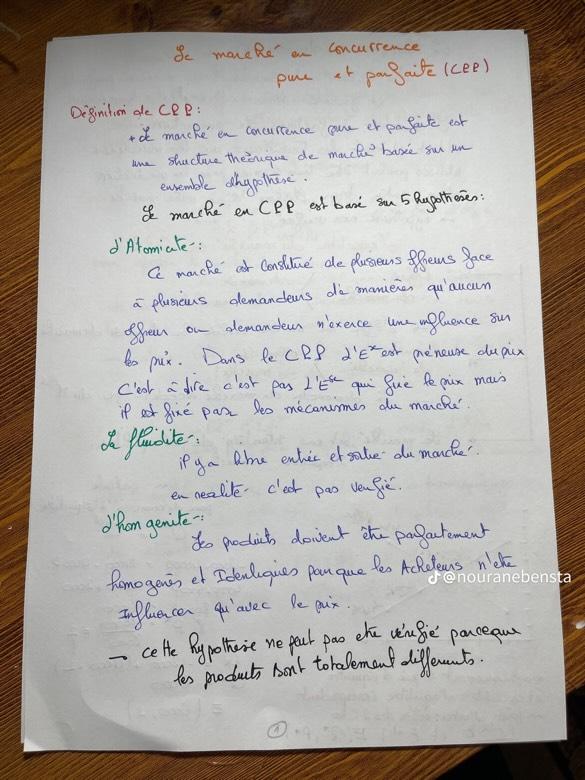 Le marché en concurrence
pure et parfaite (CPP)
Définition de CPP :
+ Le marché en concurrence pure et parfaite est
une structure théorique de marché basée sur un
ensemble d'hypothèse.
Le marché en CPP est basé sur 5 hypothèses :
d'Atomicité :
Ce marché est constitué de plusieurs offreurs face
à plusieurs demandeurs de manières qu'aucun
offreur ou demandeur n'exerce une influence sur
les prix. Dans le CPP L'Ese est preneuse du prix
C'est à dire c'est pas L'Ese qui fixe le prix mais
il est fixé par les mécanismes du marché.
La fluidité :
il y a libre entrée et sortie du marché.
en réalité c'est pas verifié.
d'homgenité :
Les produits doivent être parfaitement
homogenès et Identiques pour que les Acheteurs n'ete
Influencer qu'avec le prix.
→ cette hypothèse ne peut pas etre vérifié parceque
les produits sont totalement differents.
1
@nouranebensta